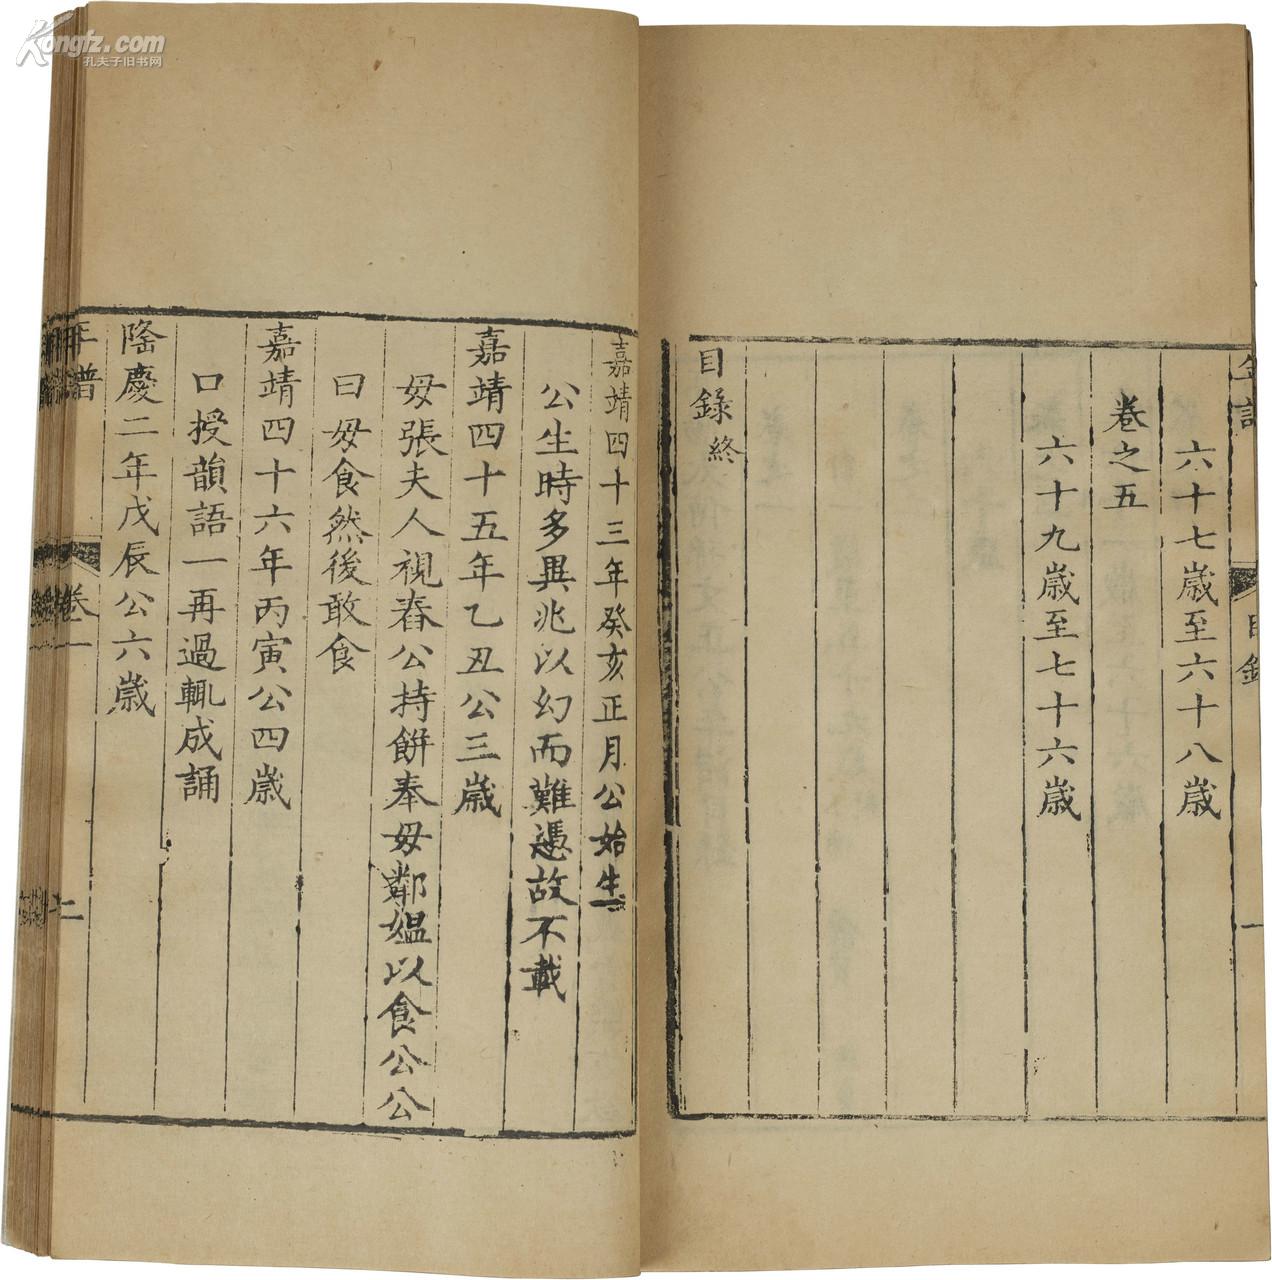 Kongfz.com
孔夫子旧书网
年譜
目錄
一
六十七歲至六十八歲
卷之五
六十九歲至七十六歲
目錄終
嘉靖四十三年癸亥正月公始生
公生時多異兆以幻而難憑故不載
嘉靖四十五年乙丑公三歲
母張夫人視舂公持餅奉母鄰媼以食公公
曰母食然後敢食
嘉靖四十六年丙寅公四歲
口授韻語一再過輒成誦
隆慶二年戊辰公六歲
年譜
卷一
二